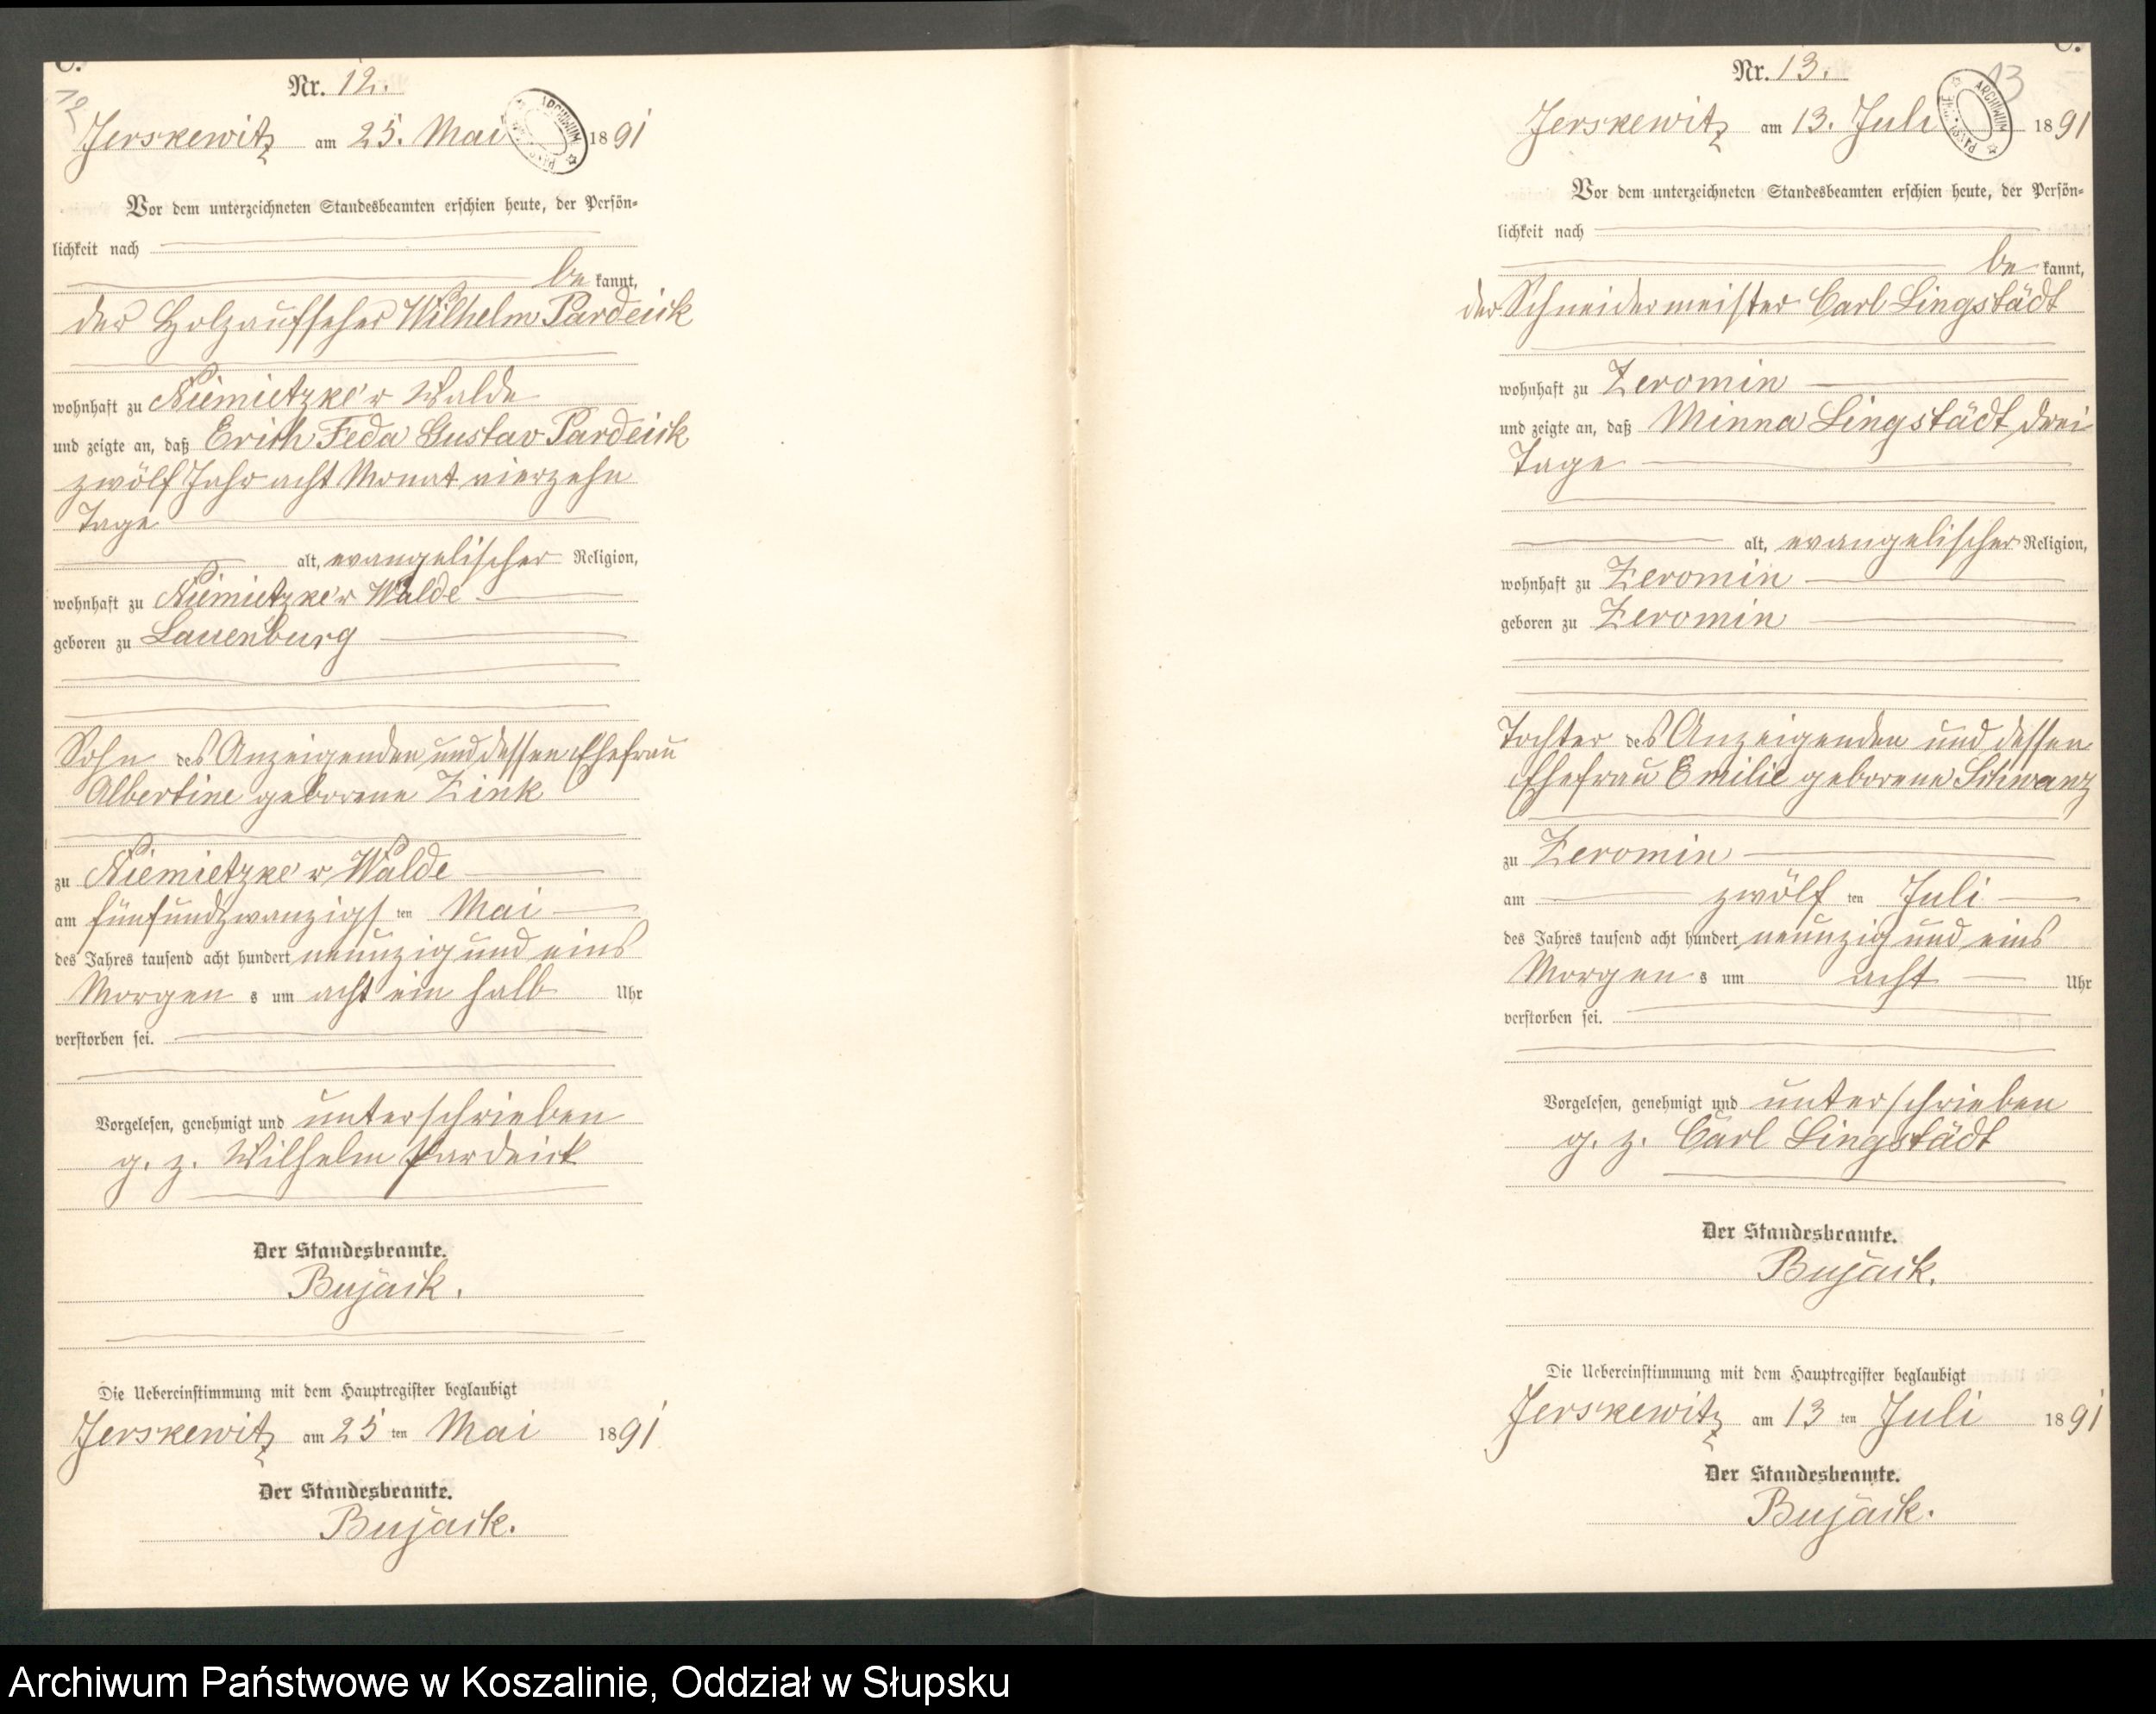 C.
Nr. 12.
12
Jerskewitz am 25. Mai 1891
ARCHIWUM
Vor dem unterzeichneten Standesbeamten erschien heute, der Persön-
lichkeit nach
be kannt,
der Holzaufseher Wilhelm Pardeick
wohnhaft zu Niemietzke'r Walde
und zeigte an, daß Erich Feda Gustav Pardeick
zwölf Jahr acht Monat vierzehn
Tage
alt, evangelischer Religion,
wohnhaft zu Niemietzke'r Walde
geboren zu Lauenburg
Sohn des Anzeigenden und dessen Ehefrau
Albertine geborene Zink
zu Niemietzke'r Walde
am fünfundzwanzigs ten Mai
des Jahres tausend acht hundert neunzig und eins
Morgen s um acht ein halb Uhr
verstorben sei.
Vorgelesen, genehmigt und unterschrieben
g. z. Wilhelm Pardeick
Der Standesbeamte.
Bujack.
Die Uebereinstimmung mit dem Hauptregister beglaubigt
Jerskewitz am 25 ten Mai 1891
Der Standesbeamte.
Bujack.
C.
Nr. 13.
13
Jerskewitz am 13. Juli 1891
ARCHIWUM
Vor dem unterzeichneten Standesbeamten erschien heute, der Persön-
lichkeit nach
be kannt,
der Schneidermeister Carl Lingstädt
wohnhaft zu Zeromin
und zeigte an, daß Minna Lingstädt, drei
Tage
alt, evangelischer Religion,
wohnhaft zu Zeromin
geboren zu Zeromin
Tochter des Anzeigenden und dessen
Ehefrau Emilie geborene Schwanz
zu Zeromin
am zwölf ten Juli
des Jahres tausend acht hundert neunzig und eins
Morgen s um acht Uhr
verstorben sei.
Vorgelesen, genehmigt und unterschrieben
g. z. Carl Lingstädt
Der Standesbeamte.
Bujack.
Die Uebereinstimmung mit dem Hauptregister beglaubigt
Jerskewitz am 13 ten Juli 1891
Der Standesbeamte.
Bujack.
Archiwum Państwowe w Koszalinie, Oddział w Słupsku